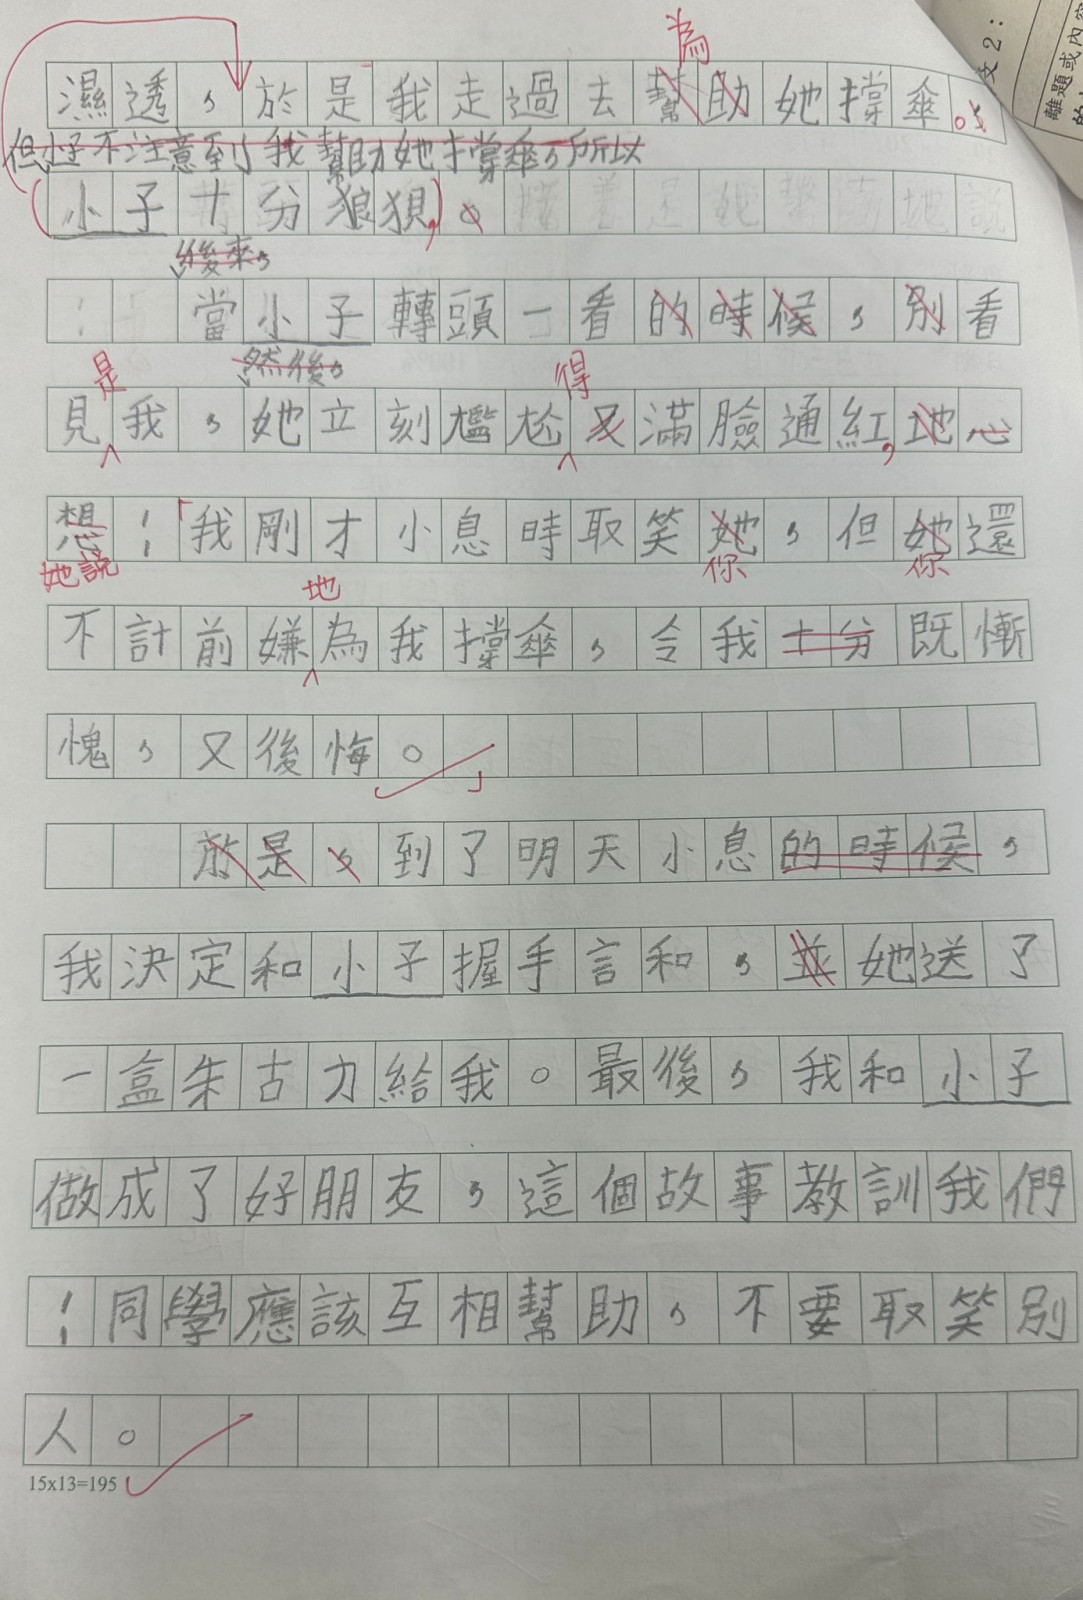 為
濕透，於是我走過去幫助她撐傘。
但小子不注意到我幫助她撐傘，所以
小子十分狼狽，
後來，
當小子轉頭一看的時候，別看
是 然後， 得
見我，她立刻尷尬又滿臉通紅，地心
想：「我剛才小息時取笑她，但她還
她說 地 你 你
不計前嫌為我撐傘，令我十分既慚
愧，又後悔。」
於是，到了明天小息的時候，
我決定和小子握手言和，並她送了
一盒朱古力給我。最後，我和小子
做成了好朋友，這個故事教訓我們
：同學應該互相幫助，不要取笑別
人。
15x13=195
支2：
離題或內容